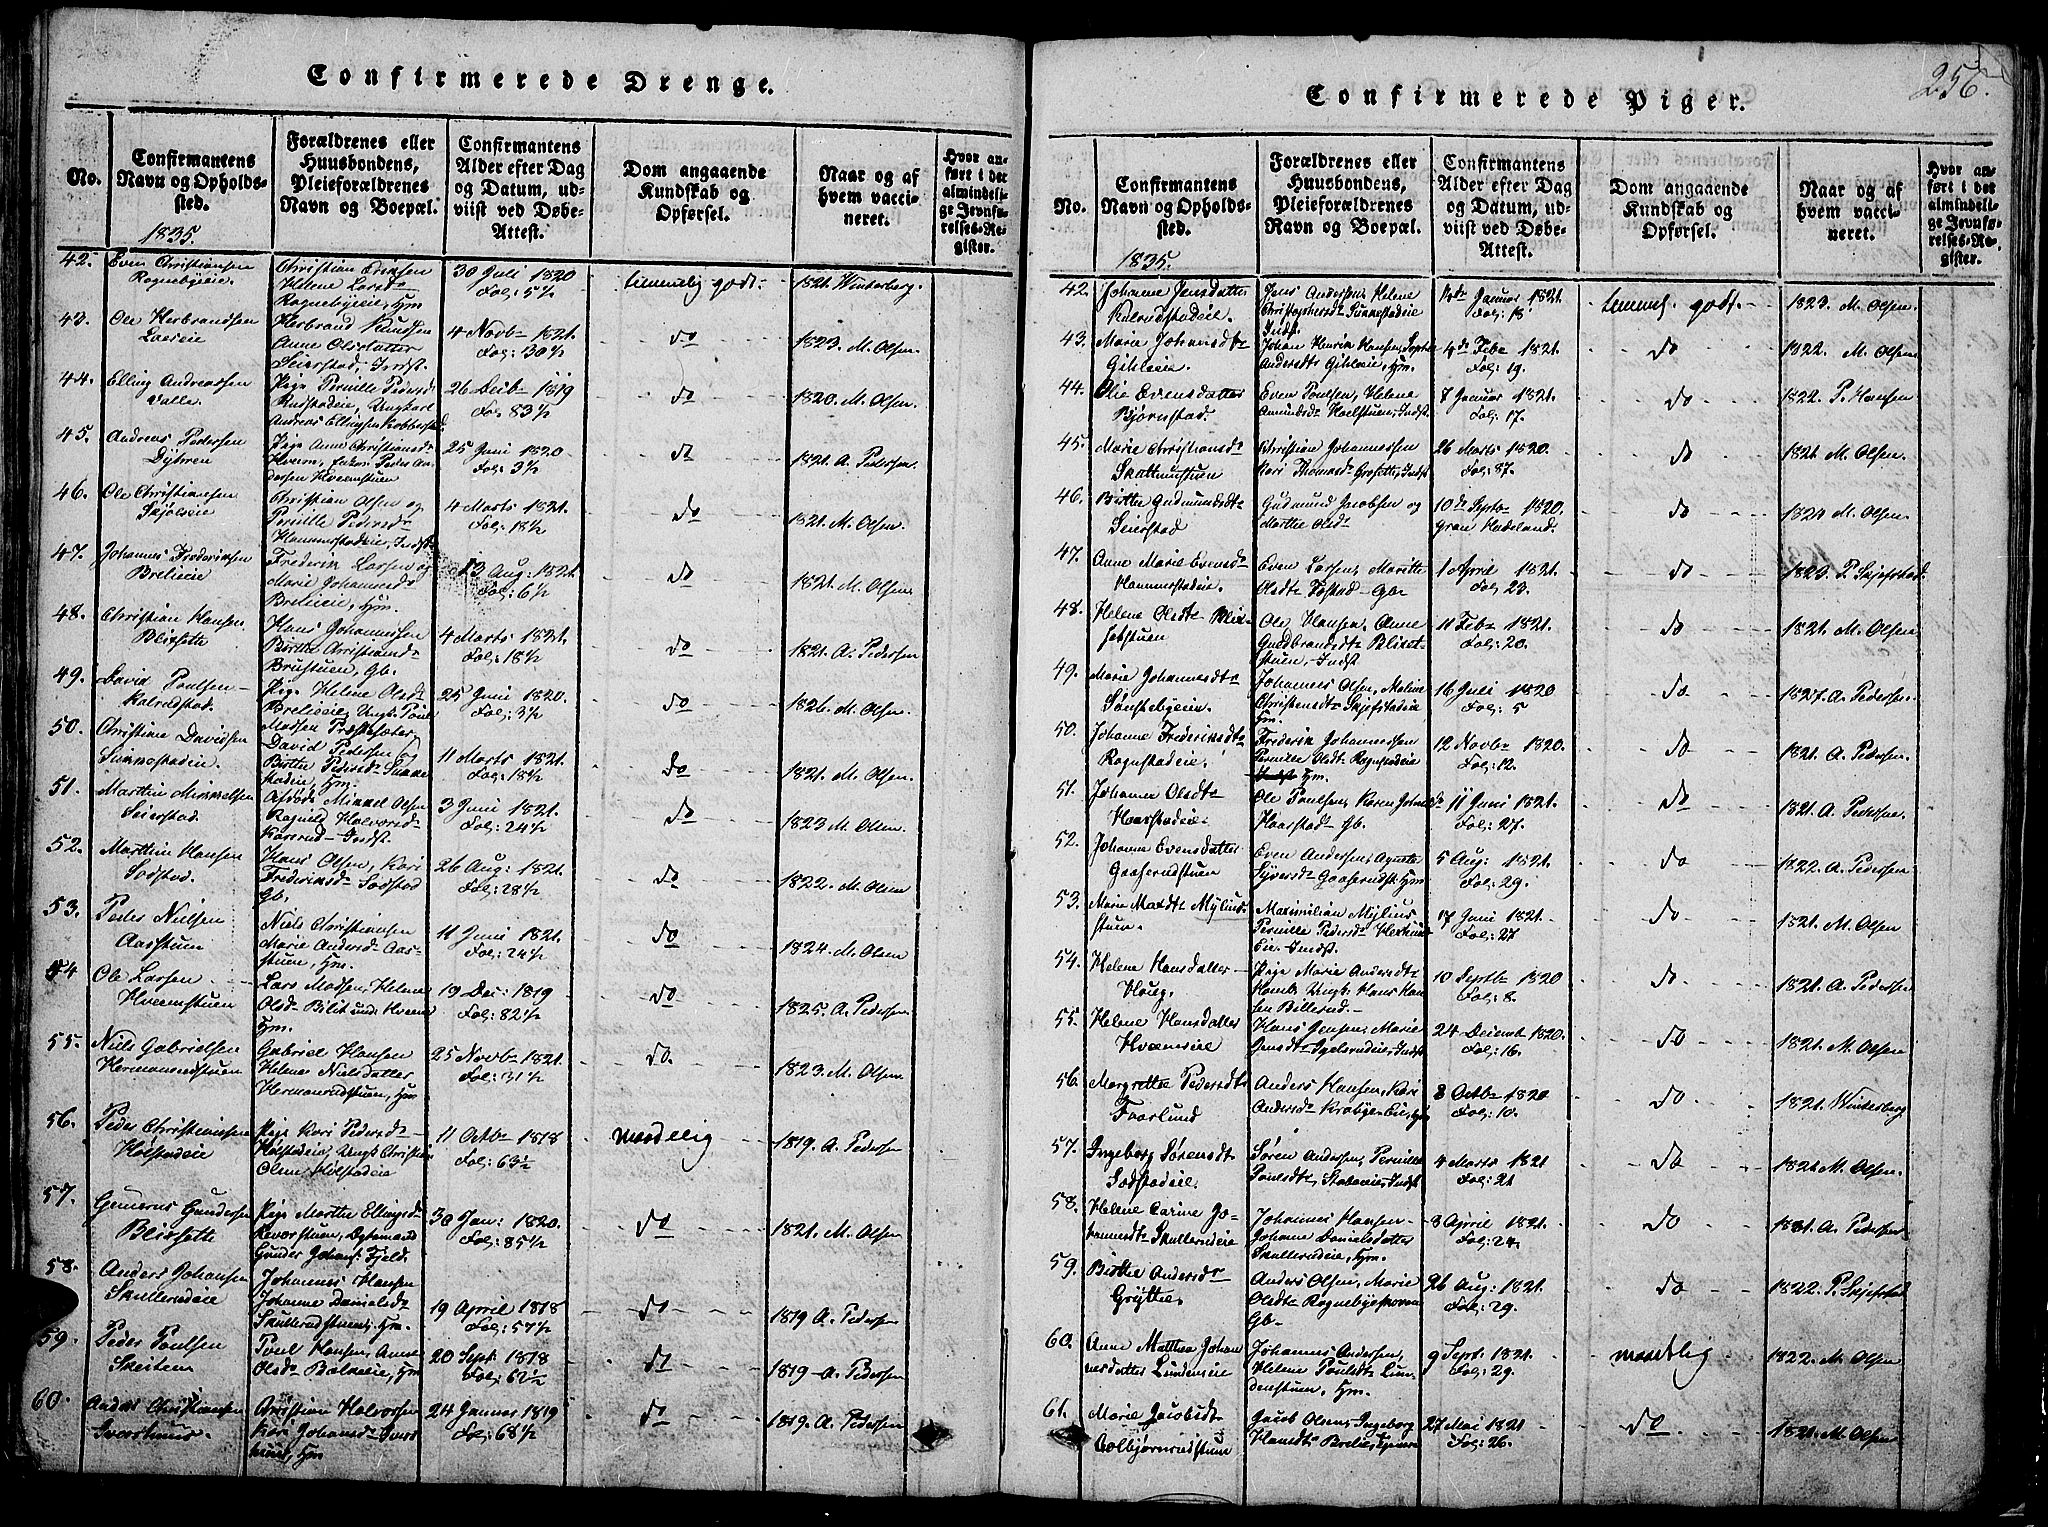 256.
Confirmerede Drenge.
No.
Confirmantens Navn og Opholdssted.
Forældrenes eller Huusbondens, Pleieforældrenes Navn og Boepæl.
Confirmantens Alder efter Dag og Datum, udviist ved Døbe-Attest.
Dom angaaende Kundskab og Opførsel.
Naar og af hvem vaccineret.
Hvor anført i det almindelige Jevnførelses-Register.
1835.
42. Even Christiansen
Rognebyeie.
Christian Evensen
Helene Larsd
Rognebyeie, Hm
30 Juli 1820
Fol; 5½
temmelig godt.
1821. Winterberg.
43. Ole Herbrandsen
Herbrand Knudsen
Anne Olsdatter
Seierstad, Indst.
4 Novb 1821.
Fol: 30½
do
1823. M. Olsen.
44. Elling Andreassen
Valle.
Pige Pernille Pedersd
Rudstadeie, Ungkarl
Andreas Ellingsen
26 Decb 1819
Fol; 83½
do
1820. M. Olsen.
45. Andreas Pedersen
Dyhren
Pige Anne Christiansd
Hveem, Enkem. Peder An
dersen Hveemstuen
25 Juni 1820
Fol; 3½
do
1821. A. Pedersen.
46. Ole Christiansen
Skjolseie
Christian Olsen og
Pernille Pedersd
Hammerstadeie, Indst
4 Marts 1821.
Fol: 18½
do
1821. M. Olsen.
47. Johannes Frederiksen
Brelieeie
Frederik Larsen og
Marie Johannesd
Brelieeie, Hm.
13 Aug: 1821.
Fol; 6½
do
1821. M. Olsen.
48. Christian Hansen
Blixsette
Hans Johannessen
Birthe Christiansd
Brustuen, Gb.
4 Marts 1821.
Fol; 18½
do
1821. A. Pedersen
49. David Poulsen
Kalrudstad.
Pige Helene Olsd
Brelieeie, Ungk. Poul
Madsen Præstesæter
25 Juni 1820.
Fol; 3½
do
1826. M. Olsen.
50. Christian Davidsen
Sunnestadeie.
David Pedersen
Birthe Pedersd Sunne
stadeie, Hm.
11 Marts 1821.
Fol; 18½
do
1821. M. Olsen.
51. Martin Mikkelsen
Seierstad.
Afdøde Mikkel Olsen
Ragnild Halvorsd
Kaserud- Indst.
3 Juni 1821.
Fol; 24½
do
1823 M. Olsen.
52. Martin Hansen
Sodstad.
Hans Olsen, Kari
Frederiksd Sodstad
Gb.
26 Aug: 1821.
Fol: 28½
do
1822. M. Olsen
53. Peder Nielsen
Aasstuen
Niels Christiansen
Marie Andersd Aas-
stuen, Hm.
11 Juni 1821.
Fol; 24½
do
1824. M. Olsen
54 Ole Larsen
Hveemstuen
Lars Madsen, Helene
Olsd Bilit und. Hveem
Hm.
19 Dec: 1819
Fol; 82½
do
1825. A. Pedersen.
55. Niels Gabrielsen
Hermanrudstuen
Gabriel Hansen
Helene Nielsdatter
Hermanrudstuen, Hm
25 Novb 1821.
Fol: 31½
do.
1823. M. Olsen
56. Peder Christiansen
Holstadeie
Pige Kari Pedersd
Holstadeie, Ungk. Christian
Olsen Holstadeie
11 Octb 1818
Fol; 63½
maadelig
1819. A. Pedersen
57. Gunerus Gundersen
Blixsette
Pige Marthe Ellingsd
Gunder Johans. Fjeld.
30 Jan: 1820.
Fol; 85½
do
1821. M. Olsen.
58. Anders Johansen
Skullerudeie
Johannes Hansen
Johanne Danielsd
Skullerudstuen, Hm
19 April 1818
Fol; 57½
do
1819 A. Pedersen
59. Peder Poulsen
Skeiteen
Poul Hansen, Anne
Olsd Balkeeie, Hm
20 Sept: 1818
Fol; 62½
do
1819 - A. Pedersen
60. Anders Christiansen
Sværstuen.
Christian Halvorsen
Kari Johansd Svær
stuen, Hm
24 Januar 1819
Fol; 68½
do
1819. A. Pedersen
Confirmerede Piger.
No.
Confirmantens Navn og Opholdssted.
Forældrenes eller Huusbondens, Pleieforældrenes Navn og Boepæl.
Confirmantens Alder efter Dag og Datum, udviist ved Døbe-Attest.
Dom angaaende Kundskab og Opførsel.
Naar og af hvem vaccineret.
Hvor anført i det almindelige Jevnførelses-Register.
1835.
42. Johanne Jensdatter
Kalrudstadeie.
Jens Andersen, Helene
Christophersd Sunnestadeie
Indst.
14de Januar 1821.
Fol; 18
temmel. godt.
1823. M. Olsen.
43. Maria Johansdt
Gihleeie.
Johan Henrik Hansen, Sophie
Andersdt Gihleeie, Hm.
4de Feb 1821.
Fol; 19.
do
1822. M. Olsen
44. Olie Evensdatter
Bjørnstad.
Even Poulsen, Helene
Amundsd Hoelstuen, Indst
7 Januar 1821.
Fol; 17.
do
1822. P. Hansen
45. Marie Christiansd
Skattumstuen
Christian Johannessen
Kari Thomasd Grosette, Indst
26 Marts 1820.
Fol; 87.
do
1821 M. Olsen.
46. Birthe Gudmundsdt
Seierstad
Gudmund Jacobsen og
Marthe Olsd
10de Septb 1820.
Gran Hadeland.
do
1824 M. Olsen.
47. Anne Marie Evensd
Hammerstadeie.
Even Larsen, Marthe
Olsdt Fostad - Gbr
1 April 1821.
Fol; 23.
do
1823. P. Skjefstad.
48. Helene Olsdt Blix-
setstuen
Ole Hansen, Anne
Guldbrandsdt Blixet-
stuen, Indst
11 Feb 1821.
Fol; 20.
do
1821. M. Olsen
49. Marie Johannesdt
Sønstebyeie.
Johannes Olsen, Maline
Christensdt Skjefstadeie
Hm.
16 Juli 1820
Fol; 5
do
1827. A. Pedersen.
50. Johanne Frederiksdt
Rognstadeie.
Frederik Johannessen
Pernille Olsdt Rognstadeie
Hm.
12 Novb 1820.
Fol; 12.
do
1821. A. Pedersen.
51. Johanne Olsdt
Haarstadeie
Ole Poulsen, Karen Johansd
Haarstad- Gb.
11 Juni 1821.
Fol; 27.
do
1821. A. Pedersen
52. Johanne Evensdatter
Gaaserudstuen
Even Andersen, Agnethe
Syversd Gaaserudst. Hm
5 Aug: 1821.
Fol; 29.
do
1822. A. Pedersen
53. Marie Maxdt Mylius-
stuen.
Maximilian Mylius
Pernille Pedersd
Eie- Indst.
17 Juni 1821.
Fol; 27
do
1821. M. Olsen
54. Helene Hansdatter
Houg.
Pige Marie Andersdt
Ungk. Hans Han
sen Billerud.-
10 Septb 1820
Fol; 8.
do
1821. A. Pedersen
55. Helene Hansdatter
Hveemseie
Hans Jensen, Marie
Jensdt Igelsrudeie, Indst
24 Decemb 1820.
Fol; 16.
do
1821. M. Olsen
56. Margrethe Pedersdt
Faarlund
Anders Hansen, Kari
Andersd Krabyes Eie, Hm
8 Octb 1820
Fol; 10.
do
1821. Winterberg
57. Ingeborg Sørensdt
Sodstadeie.
Søren Andersen, Pernille
Poulsdt, Stabæeie, Indst
4 Marts 1821
Fol; 21
do
1821 M. Olsen.
58. Helene Carine Jo-
hannesdt Skullerudeie
Johannes Hansen
Johanne Danielsdatter
Skullerudeie, Hm.
8 April 1821.
Fol; 24.
do
1821. A. Pedersen
59. Birthe Andersd
Gryttie.
Anders Olsen, Marie
Olsdt Rognebyeskoven
Gb.
26 Aug: 1821.
Fol; 29.
do
1822. P. Skjefstad
60. Anne Mathea Johan
nesdatter Lundeneie
Johannes Andersen,
Helene Poulsdt Lun
denstuen, Hm.
9 Sept. 1821.
Fol; 29.
maadelig
1822. M. Olsen
61. Marie Jacobsdt
Colbjørnrudstuen
Jacob Olsen, Ingeborg
Hansdt Brelie,
27 Mai 1821
Fol; 26.
do
1821. M. Olsen